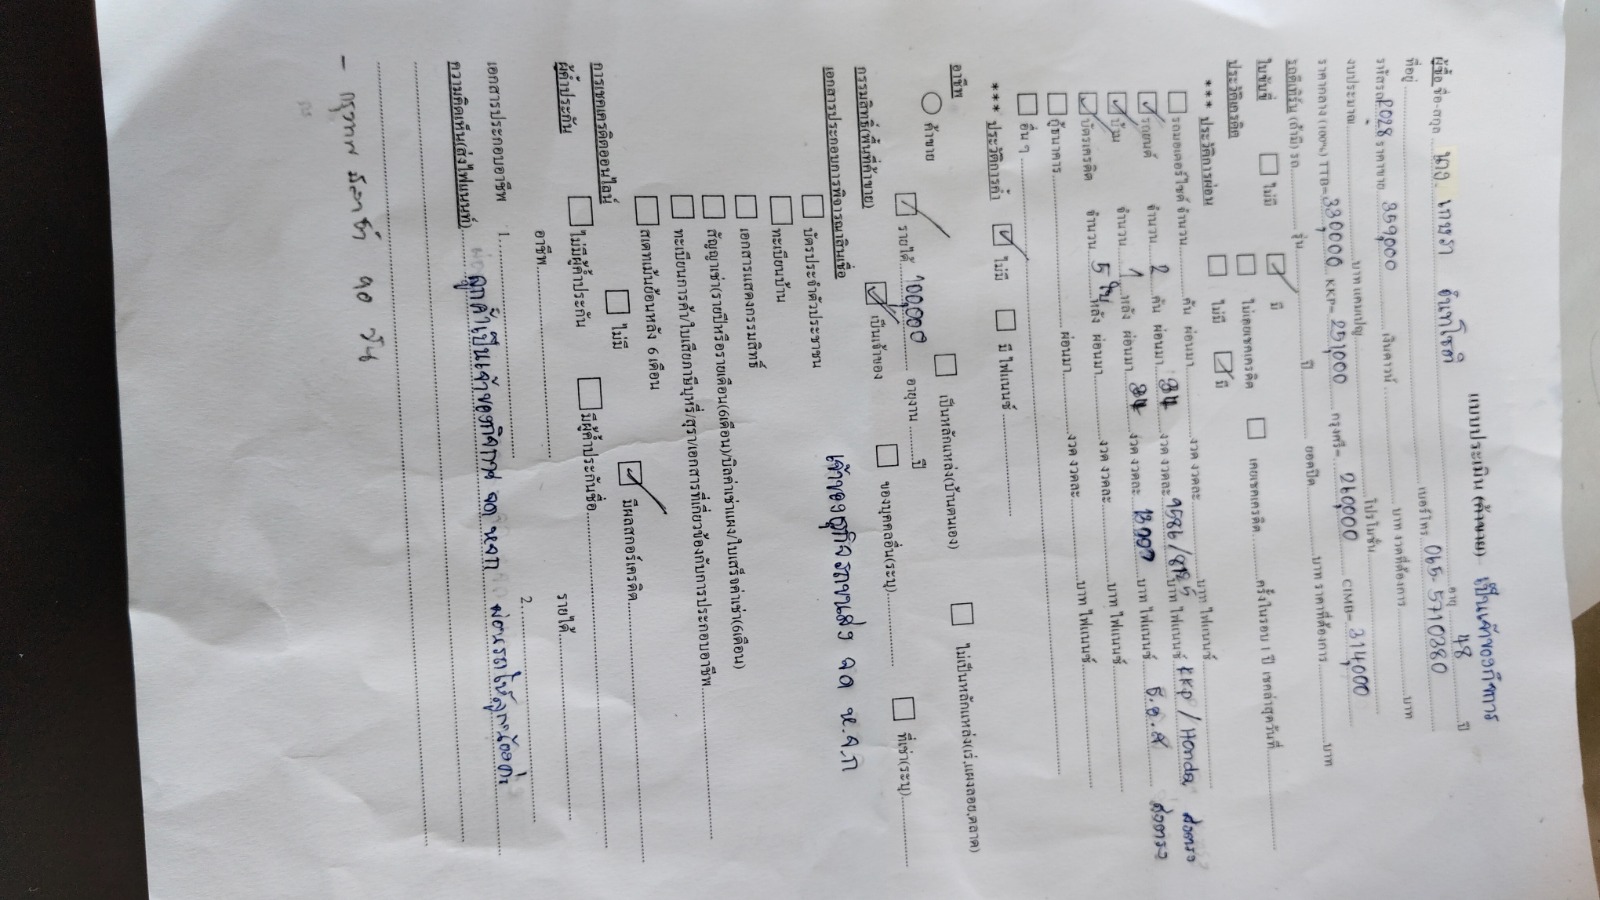 แบบประเมิน (ค้าขาย) เป็นเจ้าของกิจการ
ผู้ซื้อ ชื่อ-สกุล นาง อินทโชติ อายุ 48 ปี
ที่อยู่ เบอร์โทร 065-5710280
รหัสรถ 2028 ราคาขาย 359,000 เงินดาวน์ บาท งวดที่ต้องการ บาท
งบประมาณ บาท แคมเปญ โปรโมชั่น
ราคากลาง (100%) TTB= 330,000 KKP= 251,000 กรุงศรี= 260,000 CIMB= 314,000
รถตีเทิร์น (ถ้ามี) รถ รุ่น ปี ยอดปิด บาท ราคาที่ต้องการ บาท
ใบขับขี่ ไม่มี มี
ประวัติเครดิต ไม่เคยเชคเครดิต เคยเชคเครดิต ครั้งในรอบ 1 ปี เชคล่าสุดวันที่
*** ประวัติการผ่อน ไม่มี มี
รถมอเตอร์ไซค์ จำนวน คัน ผ่อนมา งวด งวดละ บาท ไฟแนนซ์
รถยนต์ จำนวน 2 คัน ผ่อนมา งวด งวดละ บาท ไฟแนนซ์ KKP / Honda ส่งตรง
บ้าน จำนวน 1 หลัง ผ่อนมา งวด งวดละ 13,000 บาท ไฟแนนซ์ ธ.อ.ส ส่งตรง
บัตรเครดิต จำนวน 5 ใบ หลัง ผ่อนมา งวด งวดละ บาท ไฟแนนซ์
กู้ธนาคาร ผ่อนมา งวด งวดละ บาท ไฟแนนซ์
อื่น ๆ
*** ประวัติการค้ำ ไม่มี มี ไฟแนนซ์
อาชีพ เป็นหลักแหล่ง(บ้านตนเอง) ไม่เป็นหลักแหล่ง(เร่,แผงลอย,ตลาด)
ค้าขาย รายได้ 100,000 อายุงาน ปี
กรรมสิทธิ์(พื้นที่ค้าขาย) เป็นเจ้าของ ของบุคคลอื่น(ระบุ) ที่เช่า(ระบุ)
เอกสารประกอบการพิจารณาสินเชื่อ เจ้าของธุรกิจ รถขนส่ง จด ห.จ.ก
บัตรประจำตัวประชาชน
ทะเบียนบ้าน
เอกสารแสดงกรรมสิทธิ์
สัญญาเช่า(รายปีหรือรายเดือน(6เดือน)/บิลค่าเช่าแผง/ใบเสร็จค่าเช่า(6เดือน)
ทะเบียนการค้า/ใบเสียภาษีบุหรี่/สุรา/เอกสารที่เกี่ยวข้องกับการประกอบอาชีพ
สเตทเม้นย้อนหลัง 6 เดือน
การเชคเครดิตออนไลน์ ไม่มี มีผลสกอร์เครดิต
ผู้ค้ำประกัน ไม่มีผู้ค้ำประกัน มีผู้ค้ำประกันชื่อ
อาชีพ รายได้
เอกสารประกอบอาชีพ 1. 2.
ความคิดเห็น(ส่งไฟแนนท์) ลูกค้าเป็นเจ้าของกิจการ จด หจก